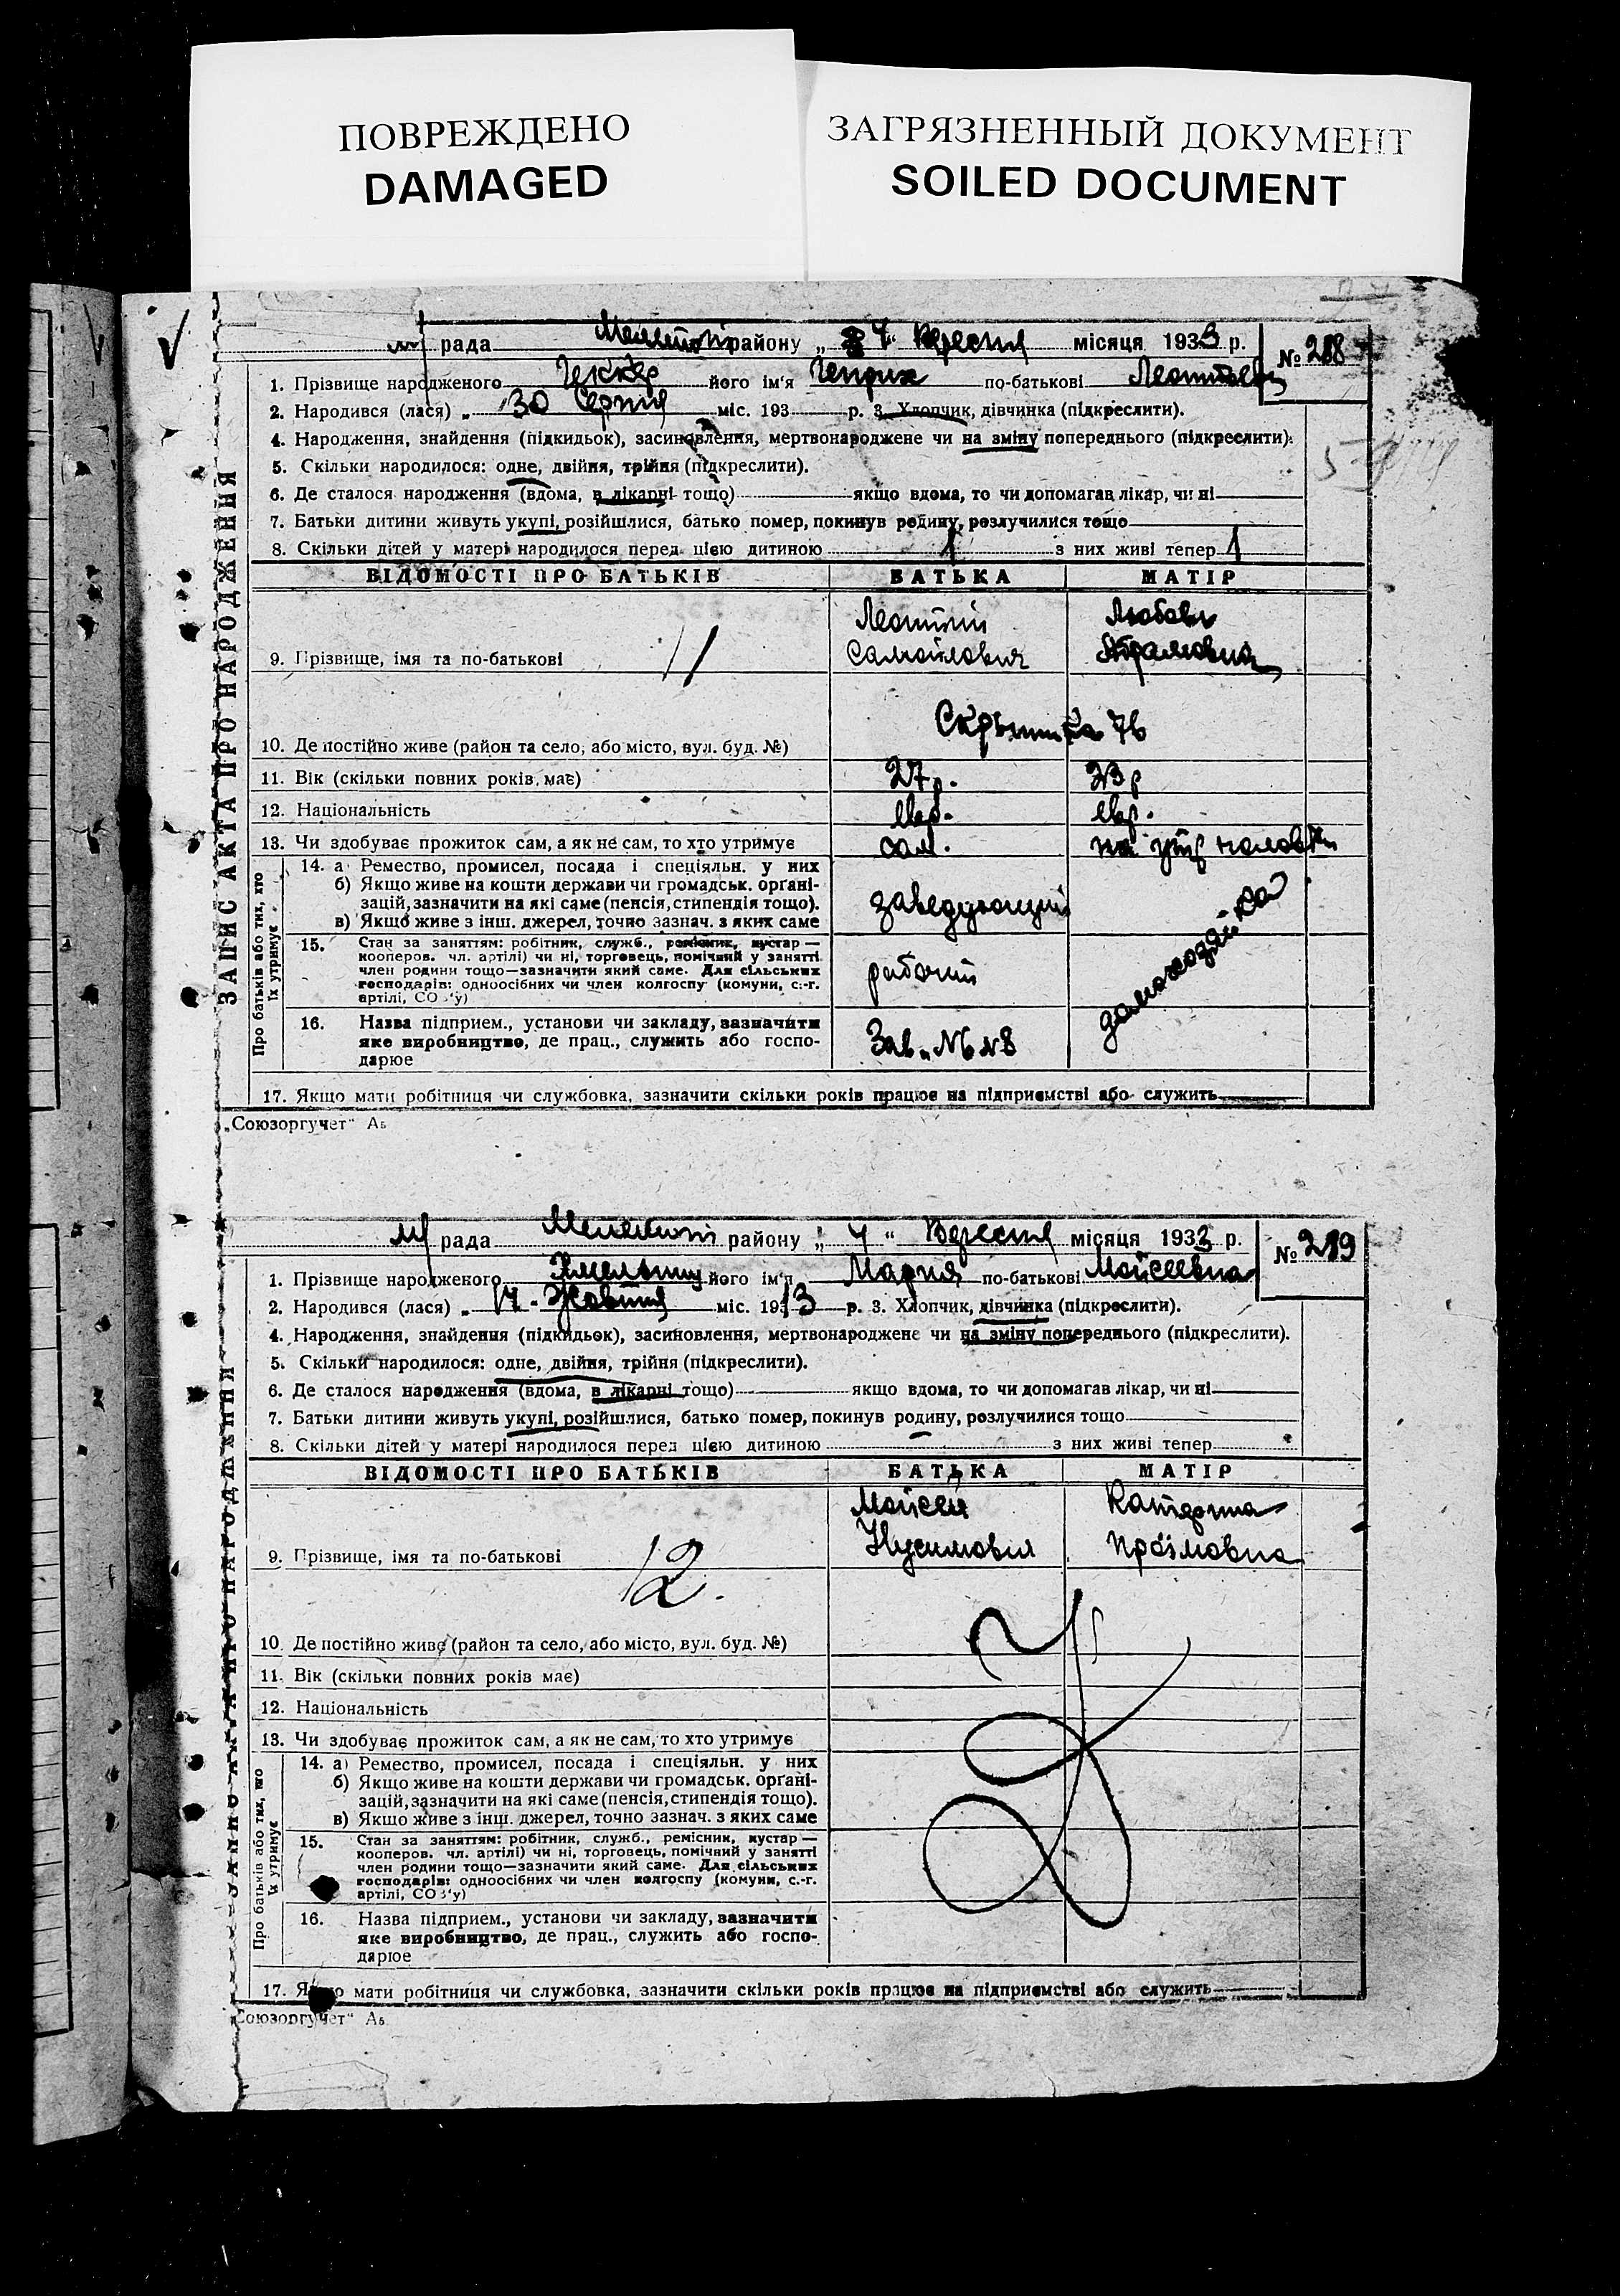 ПОВРЕЖДЕНО
DAMAGED
ЗАГРЯЗНЕННЫЙ ДОКУМЕНТ
SOILED DOCUMENT
ЗАПИС АКТА ПРО НАРОДЖЕННЯ
рада району „ 4“ Вересня місяця 1933 р. № 288
1. Прізвище народженого Геккер його ім'я Генрих по-батькові
2. Народився (лася) „ 30 Серпня міс. 193 р. 3. Хлопчик, дівчинка (підкреслити).
4. Народження, знайдення (підкидьок), засиновлення, мертвонароджене чи на зміну попереднього (підкреслити).
5. Скільки народилося: одне, двійня, трійня (підкреслити).
6. Де сталося народження (вдома, в лікарні тощо) якщо вдома, то чи допомагав лікар, чи ні
7. Батьки дитини живуть укупі, розійшлися, батько помер, покинув родину, розлучилися тощо
8. Скільки дітей у матері народилося перед цією дитиною 1 з них живі тепер 1
ВІДОМОСТІ ПРО БАТЬКІВ БАТЬКА МАТІР
Леонтій Любовь
9. Прізвище, імя та по-батькові 11 Самойлович Абрамовна
10. Де постійно живе (район та село, або місто, вул. буд. №)
11. Вік (скільки повних років має) 27 р. 23 р
12. Національність евр. евр.
13. Чи здобуває прожиток сам, а як не сам, то хто утримує сам. на утр
Про батьків або тих, хто їх утримує
14. а) Ремество, промисел, посада і спеціяльн. у них
б) Якщо живе на кошти держави чи громадськ. органі-
зацій, зазначити на які саме (пенсія, стипендія тощо).
в) Якщо живе з інш. джерел, точно зазнач. з яких саме
заведующий
домохозяйка
15. Стан за заняттям: робітник, служб., ремісник, кустар —
кооперов. чл. артілі) чи ні, торговець, помічний у занятті
член родини тощо—зазначити який саме. Для сільських
господарів: одноосібних чи член колгоспу (комуни, с.-г.
артілі, СО у)
рабочий
16. Назва підприєм., установи чи закладу, зазначити
яке виробництво, де прац., служить або госпо-
дарює
17. Якщо мати робітниця чи службовка, зазначити скільки років працює на підприємстві або служить
„Союзоргучет“
ЗАПИС АКТА ПРО НАРОДЖЕННЯ
рада району „ 4 “ Вересня місяця 1933 р. № 289
1. Прізвище народженого його ім'я Мария по-батькові Мойсеевна
2. Народився (лася) „ Жовтня міс. 1913 р. 3. Хлопчик, дівчинка (підкреслити).
4. Народження, знайдення (підкидьок), засиновлення, мертвонароджене чи на зміну попереднього (підкреслити).
5. Скільки народилося: одне, двійня, трійня (підкреслити).
6. Де сталося народження (вдома, в лікарні тощо) якщо вдома, то чи допомагав лікар, чи ні
7. Батьки дитини живуть укупі, розійшлися, батько помер, покинув родину, розлучилися тощо
8. Скільки дітей у матері народилося перед цією дитиною з них живі тепер
ВІДОМОСТІ ПРО БАТЬКІВ БАТЬКА МАТІР
Мойсей Катерина
9. Прізвище, імя та по-батькові 12.
10. Де постійно живе (район та село, або місто, вул. буд. №)
11. Вік (скільки повних років має)
12. Національність
13. Чи здобуває прожиток сам, а як не сам, то хто утримує
Про батьків або тих, хто їх утримує
14. а) Ремество, промисел, посада і спеціяльн. у них
б) Якщо живе на кошти держави чи громадськ. органі-
зацій, зазначити на які саме (пенсія, стипендія тощо).
в) Якщо живе з інш. джерел, точно зазнач. з яких саме
15. Стан за заняттям: робітник, служб., ремісник, кустар —
кооперов. чл. артілі) чи ні, торговець, помічний у занятті
член родини тощо—зазначити який саме. Для сільських
господарів: одноосібних чи член колгоспу (комуни, с.-г.
артілі, СО у)
16. Назва підприєм., установи чи закладу, зазначити
яке виробництво, де прац., служить або госпо-
дарює
17. Якщо мати робітниця чи службовка, зазначити скільки років працює на підприємстві або служить
„Союзоргучет“